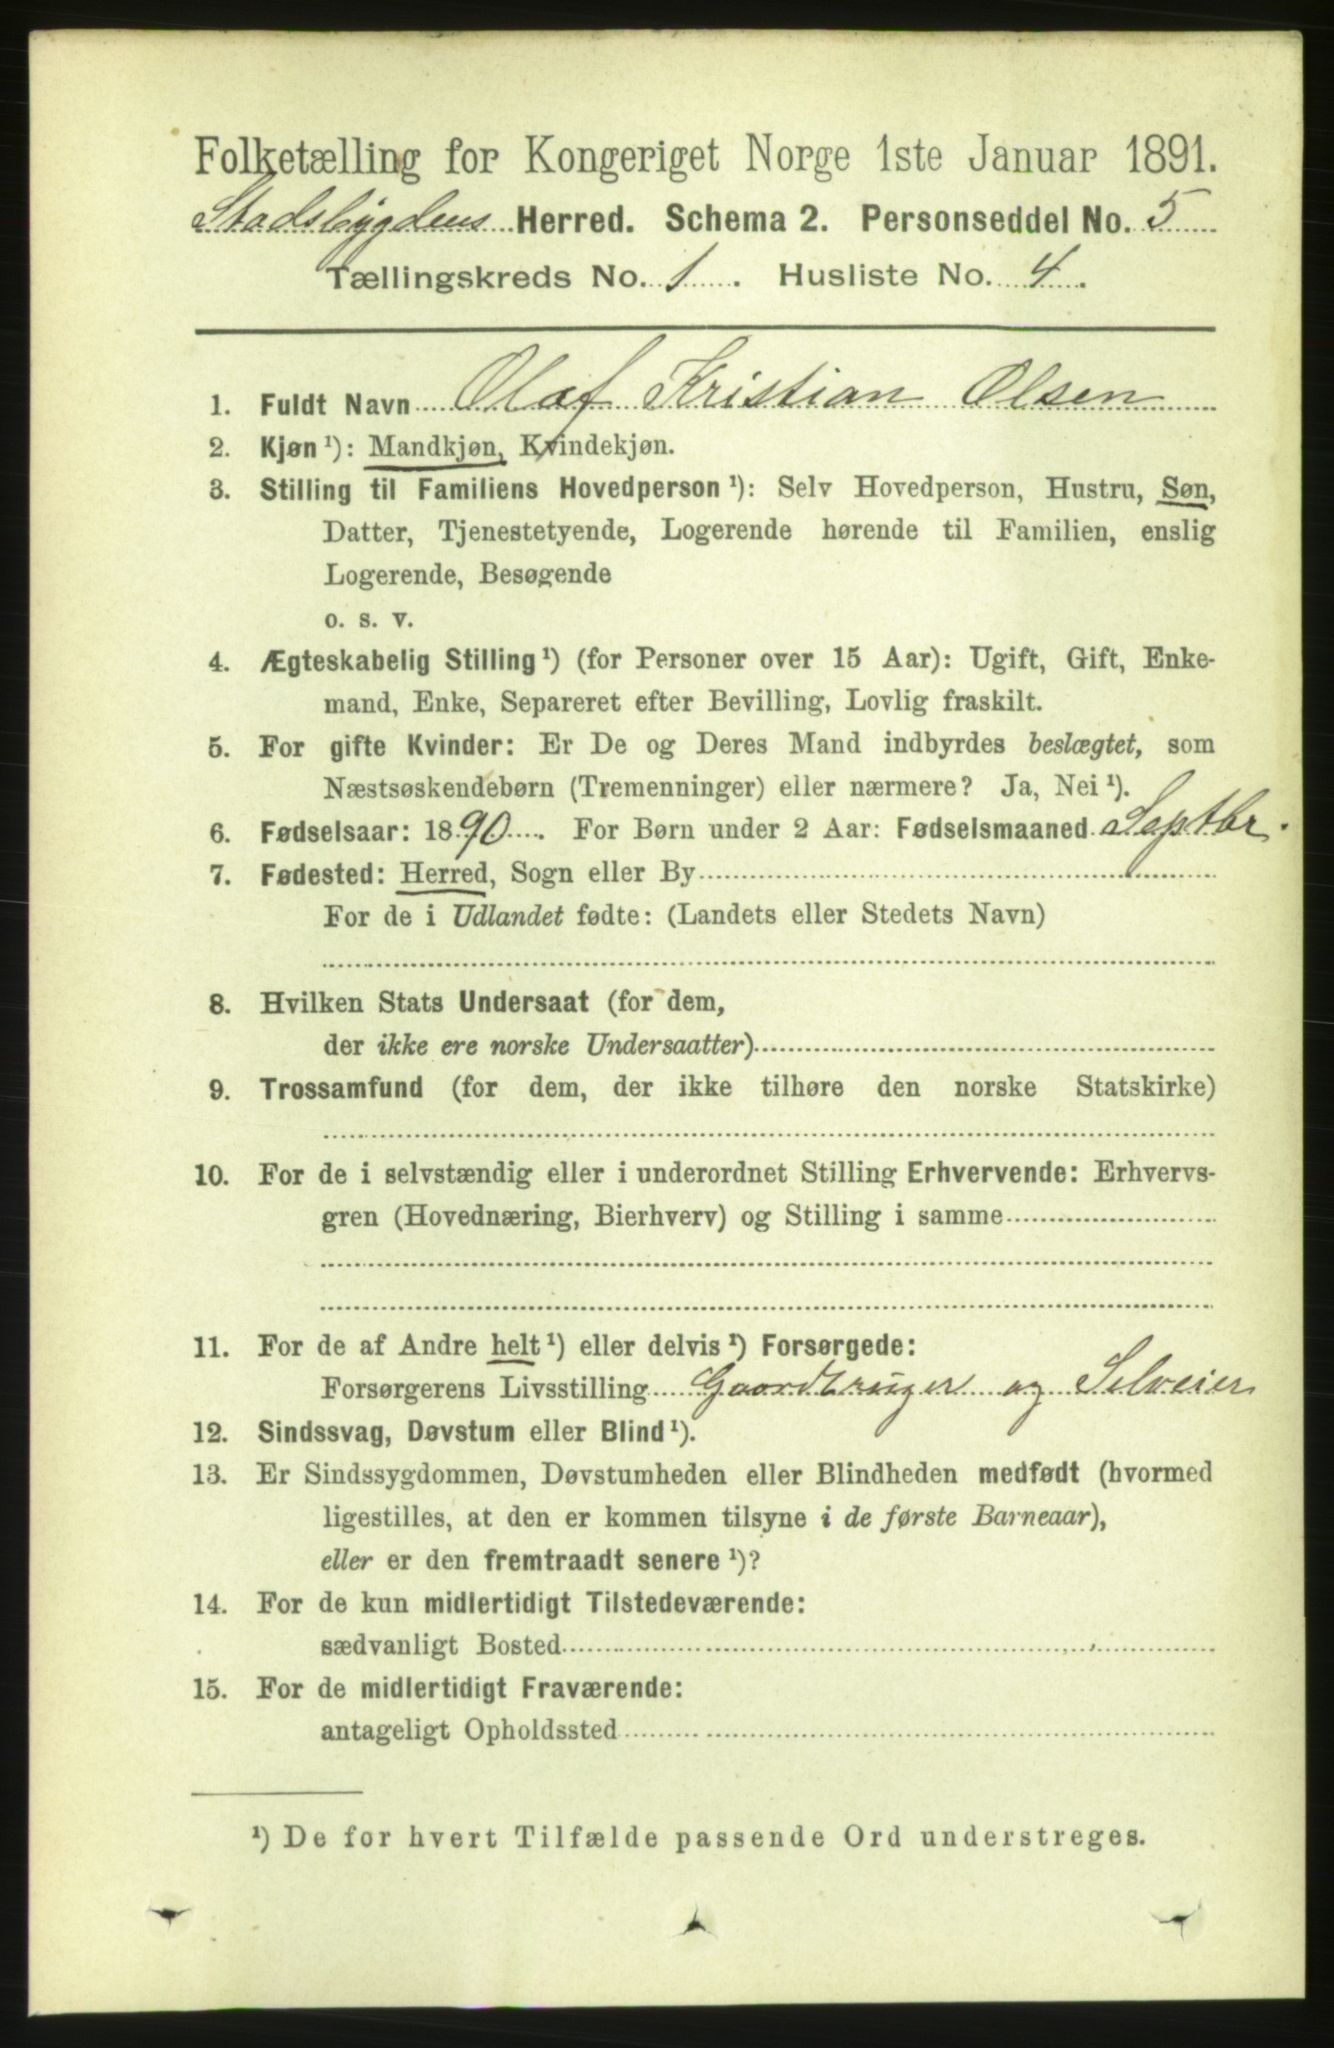 Folketælling for Kongeriget Norge 1ste Januar 1891.
Stadsbygdens Herred. Schema 2. Personseddel No. 5
Tællingskreds No. 1. Husliste No. 4.
1. Fuldt Navn Olaf Kristian Olsen
2. Kjøn¹): Mandkjøn, Kvindekjøn.
3. Stilling til Familiens Hovedperson¹): Selv Hovedperson, Hustru, Søn,
Datter, Tjenestetyende, Logerende hørende til Familien, enslig
Logerende, Besøgende
o. s. v.
4. Ægteskabelig Stilling¹) (for Personer over 15 Aar): Ugift, Gift, Enke-
mand, Enke, Separeret efter Bevilling, Lovlig fraskilt.
5. For gifte Kvinder: Er De og Deres Mand indbyrdes beslægtet, som
Næstsøskendebørn (Tremenninger) eller nærmere? Ja, Nei¹).
6. Fødselsaar: 1890. For Børn under 2 Aar: Fødselsmaaned Septbr.
7. Fødested: Herred, Sogn eller By
For de i Udlandet fødte: (Landets eller Stedets Navn)
8. Hvilken Stats Undersaat (for dem,
der ikke ere norske Undersaatter)
9. Trossamfund (for dem, der ikke tilhøre den norske Statskirke)
10. For de i selvstændig eller i underordnet Stilling Erhvervende: Erhvervs-
gren (Hovednæring, Bierhverv) og Stilling i samme
11. For de af Andre helt¹) eller delvis¹) Forsørgede:
Forsørgerens Livsstilling Gaardbruger og Selveier
12. Sindssvag, Døvstum eller Blind¹).
13. Er Sindssygdommen, Døvstumheden eller Blindheden medfødt (hvormed
ligestilles, at den er kommen tilsyne i de første Barneaar),
eller er den fremtraadt senere¹)?
14. For de kun midlertidigt Tilstedeværende:
sædvanligt Bosted
15. For de midlertidigt Fraværende:
antageligt Opholdssted
¹) De for hvert Tilfælde passende Ord understreges.